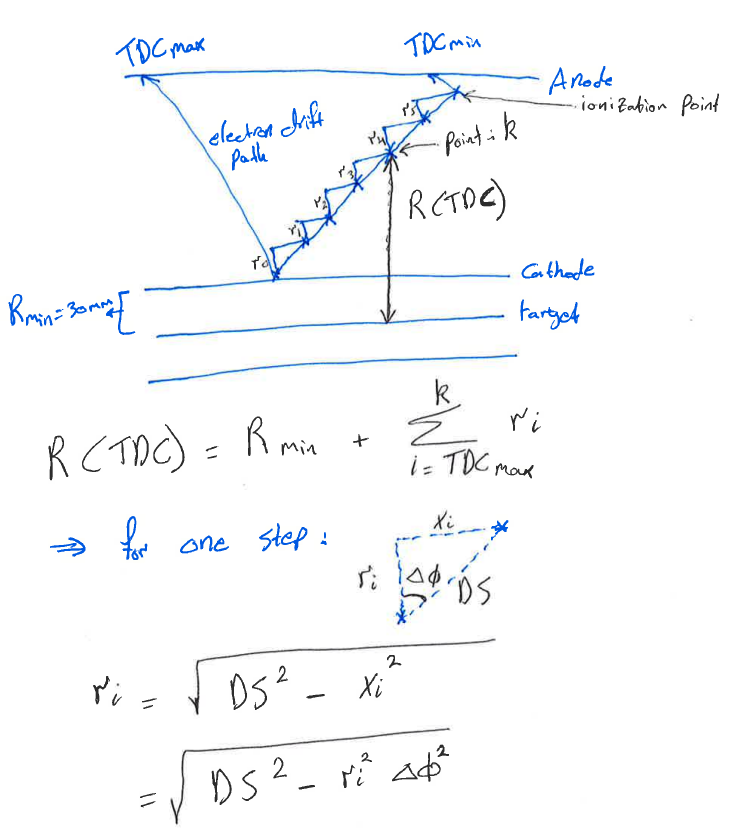 TDCmax
TDCmin
Anode
ionization point
electron drift
path
r5
r4
point: k
r3
R(TDC)
r2
r1
r0
Cathode
Rmin=30mm
target
R(TDC) = Rmin + k∑i=TDCmax ri
⇒ for one step:
xi
ri
Δϕ
DS
ri = √DS² - xi²
= √DS² - ri² Δϕ²